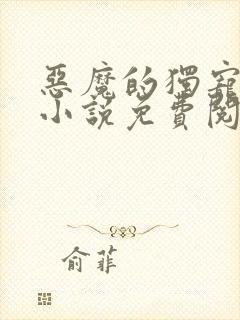 惡魔的獨寵
小說免費閱
俞菲